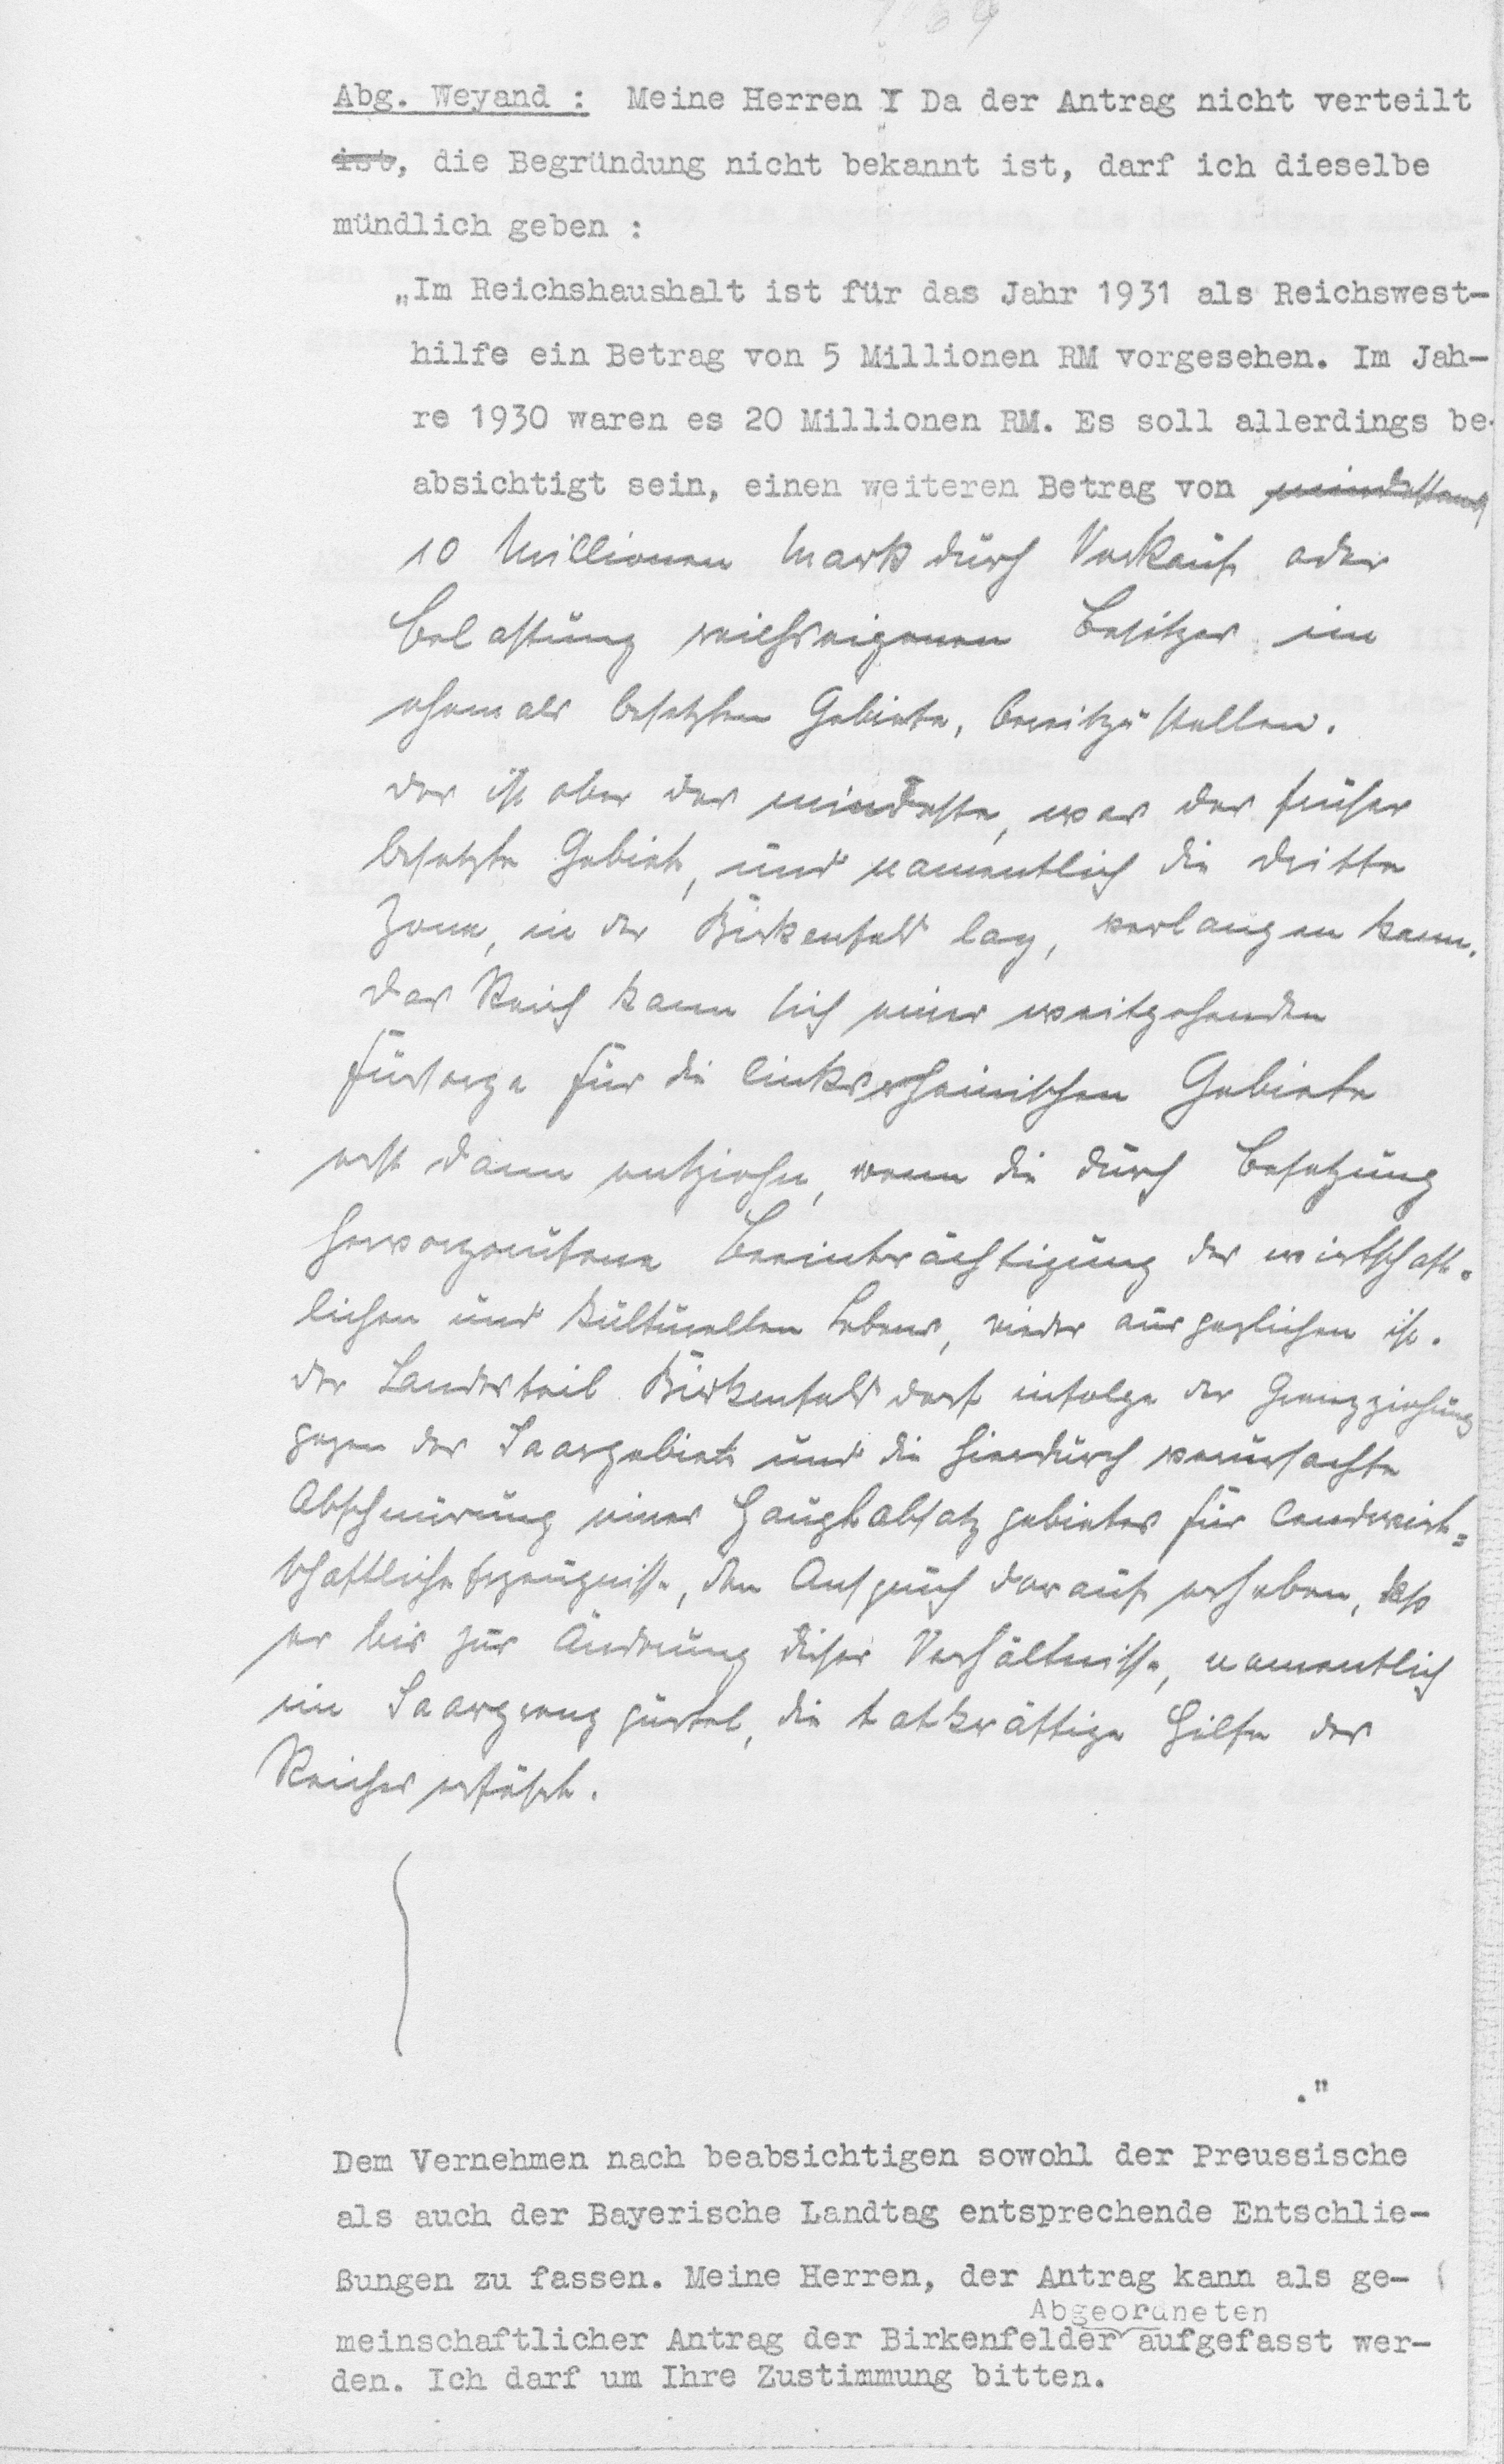 Abg. Weyand : Meine Herren ! Da der Antrag nicht verteilt
ist, die Begründung nicht bekannt ist, darf ich dieselbe
mündlich geben :
„Im Reichshaushalt ist für das Jahr 1931 als Reichswest-
hilfe ein Betrag von 5 Millionen RM vorgesehen. Im Jah-
re 1930 waren es 20 Millionen RM. Es soll allerdings be-
absichtigt sein, einen weiteren Betrag von mindestens
10 Millionen Mark durch Verkauf oder
Belastung reichseigenen Besitzes im
ehemals besetzten Gebiete, bereitzustellen.
Das ist aber das mindeste, was das früher
besetzte Gebiet, und namentlich die dritte
Zone, in der Birkenfeld lag, verlangen kann.
Das Reich kann sich einer weitgehenden
Fürsorge für die linksrheinischen Gebiete
erst dann entziehn, wenn die durch Besetzung
hervorgerufene Beeinträchtigung des wirtschaft-
lichen und kulturellen Lebens, wieder ausgeglichen ist.
Der Landesteil Birkenfeld darf infolge der Grenzziehung
gegen das Saargebiet und die hierdurch verursachte
Abschnürung eines Hauptabsatzgebietes für landwirt=
schaftliche Erzeugnisse, den Anspruch darauf erheben, daß
er bis zur Änderung dieser Verhältnisse, namentlich
im Saargrenzgürtel, die tatkräftige Hilfe des
Reiches erfährt.
."
Dem Vernehmen nach beabsichtigen sowohl der Preussische
als auch der Bayerische Landtag entsprechende Entschlie-
ßungen zu fassen. Meine Herren, der Antrag kann als ge-
Abgeordneten
meinschaftlicher Antrag der Birkenfelder aufgefasst wer-
den. Ich darf um Ihre Zustimmung bitten.